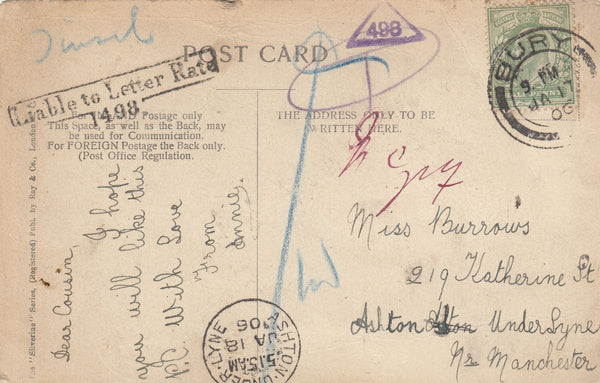 Tinsel
Liable to Letter Rate
1498
POST CARD
498
BURY
9 PM
JA 17
06
This Space, as well as the Back, may
be used for Communication.
For FOREIGN Postage the Back only.
(Post Office Regulation.
THE ADDRESS ONLY TO BE
WRITTEN HERE.
The "Silverine" Series, (Registered) Publ. by Ray & Co., London
Dear Cousin,
I hope
you will like this
P.C. With Love
From
Annie.
1d
Miss Burrows
219 Katherine St
Ashton UnderLyne
Nr Manchester
ASHTON-UNDER-LYNE
5.15 AM
JA 18
06